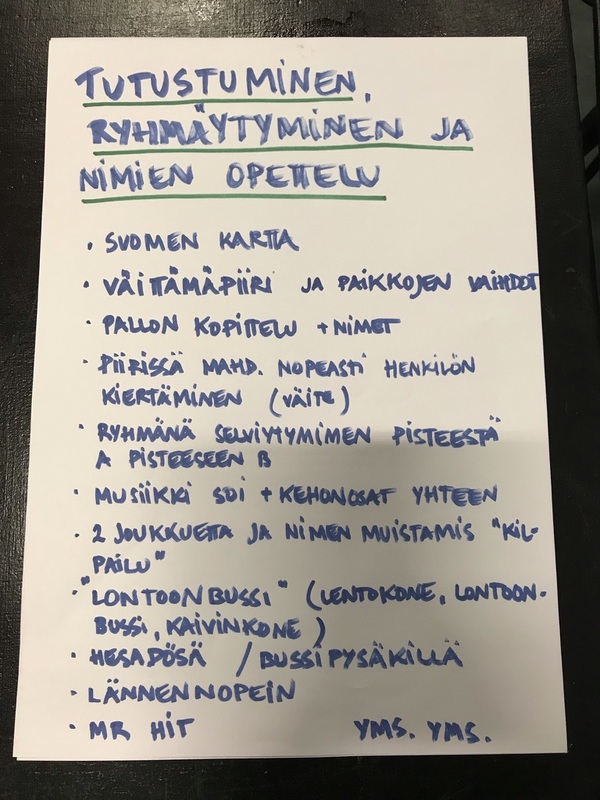 TUTUSTUMINEN,
RYHMÄYTYMINEN JA
NIMIEN OPETTELU
• SUOMEN KARTTA
• VÄITTÄMÄPIIRI JA PAIKKOJEN VAIHDOT
• PALLON KOPITTELU + NIMET
• PIIRISSÄ MAHD. NOPEASTI HENKILÖN
KIERTÄMINEN (VÄITE)
• RYHMÄNÄ SELVIYTYMIMEN PISTEESTÄ
A PISTEESEEN B
• MUSIIKKI SOI + KEHONOSAT YHTEEN
• 2 JOUKKUETTA JA NIMEN MUISTAMIS "KIL-
PAILU"
• "LONTOONBUSSI" (LENTOKONE, LONTOON-
BUSSI, KAIVINKONE)
• HESADÖSÄ / BUSSIPYSÄKILLÄ
• LÄNNEN NOPEIN
• MR HIT YMS. YMS.